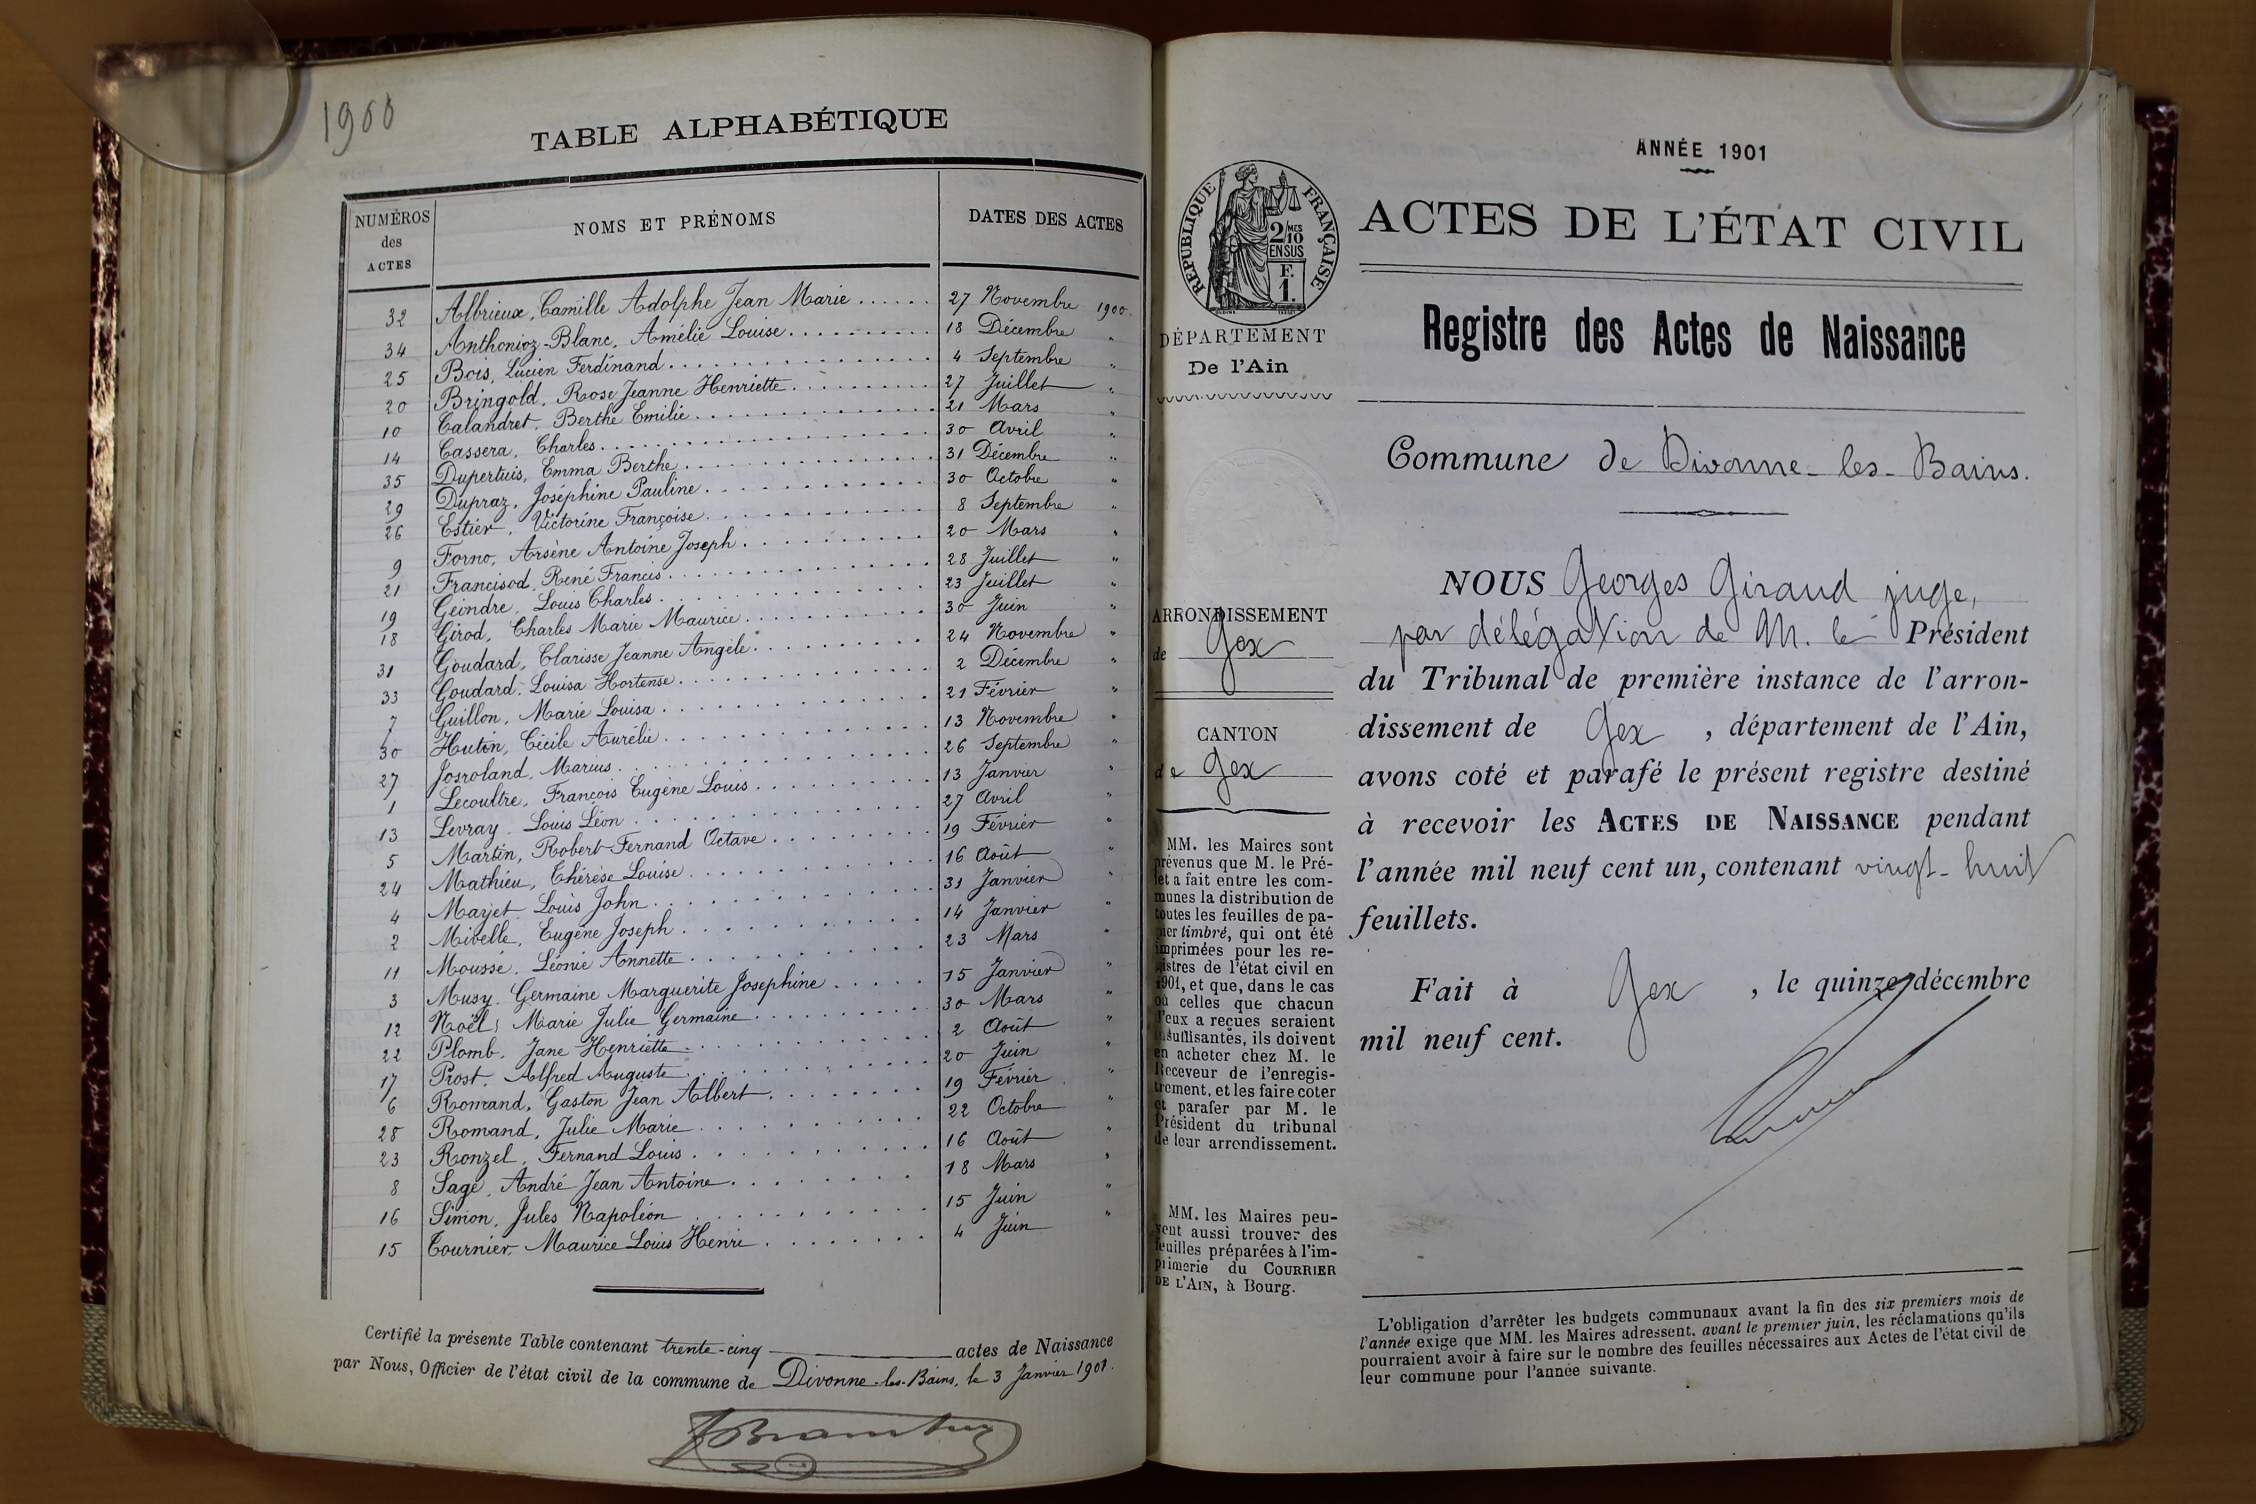 1900
TABLE ALPHABÉTIQUE
NUMÉROS des ACTES
NOMS ET PRÉNOMS
DATES DES ACTES
32 Albrieux, Camille Adolphe Jean Marie ...... 27 Novembre 1900.
34 Anthonioz-Blanc, Amélie Louise .......... 18 Décembre "
25 Bois, Lucien Ferdinand .......... 4 Septembre "
20 Bringold, Rose Jeanne Henriette .......... 27 Juillet "
10 Calandret, Berthe Emilie .......... 21 Mars "
14 Cassera, Charles .......... 30 Avril "
35 Dupertuis, Emma Berthe .......... 31 Décembre "
29 Dupraz, Joséphine Pauline .......... 30 Octobre "
26 Estier, Victorine Françoise .......... 8 Septembre "
9 Forno, Arsène Antoine Joseph .......... 20 Mars "
21 Francisod, René Francis .......... 28 Juillet "
19 Geindre, Louis Charles .......... 23 Juillet "
18 Girod, Charles Marie Maurice .......... 30 Juin "
31 Goudard, Clarisse Jeanne Angèle .......... 24 Novembre "
33 Goudard, Louisa Hortense .......... 2 Décembre "
7 Guillon, Marie Louisa .......... 21 Février "
30 Hutin, Cécile Aurélie .......... 13 Novembre "
27 Josroland, Marius .......... 26 Septembre "
1 Lecoultre, François Eugène Louis .......... 13 Janvier "
13 Levray, Louis Léon .......... 27 Avril "
5 Martin, Robert Fernand Octave .......... 19 Février "
24 Mathieu, Thérèse Louise .......... 16 Août "
4 Mayet, Louis John .......... 31 Janvier "
2 Mivelle, Eugène Joseph .......... 14 Janvier "
11 Moussé, Léonie Annette .......... 23 Mars "
3 Musy, Germaine Marguerite Josephine ..... 15 Janvier "
12 Noël, Marie Julie Germaine .......... 30 Mars "
22 Plomb, Jane Henriette .......... 2 Août "
17 Prost, Alfred Auguste .......... 20 Juin "
6 Romand, Gaston Jean Albert .......... 19 Février "
28 Romand, Julie Marie .......... 22 Octobre "
23 Ronzel, Fernand Louis .......... 16 Août "
8 Sage, André Jean Antoine .......... 18 Mars "
16 Simon, Jules Napoléon .......... 15 Juin "
15 Tournier, Maurice Louis Henri .......... 4 Juin "
Certifié la présente Table contenant trente-cinq actes de Naissance
par Nous, Officier de l'état civil de la commune de Divonne-les-Bains, le 3 Janvier 1901.
RÉPUBLIQUE FRANÇAISE
2/10 MES
EN SUS
F.
1.
DÉPARTEMENT
De l'Ain
ARRONDISSEMENT
de Gex
CANTON
de Gex
MM. les Maires sont
prévenus que M. le Pré-
fet a fait entre les com-
munes la distribution de
toutes les feuilles de pa-
pier timbré, qui ont été
imprimées pour les re-
gistres de l'état civil en
1901, et que, dans le cas
où celles que chacun
d'eux a reçues seraient
insuffisantes, ils doivent
en acheter chez M. le
Receveur de l'enregis-
trement, et les faire coter
et parafer par M. le
Président du tribunal
de leur arrondissement.
MM. les Maires peu-
vent aussi trouver des
feuilles préparées à l'im-
primerie du COURRIER
DE L'AIN, à Bourg.
ANNÉE 1901
ACTES DE L'ÉTAT CIVIL
Registre des Actes de Naissance
Commune de Divonne-les-Bains.
NOUS Georges Giraud juge,
par délégation de M. le Président
du Tribunal de première instance de l'arron-
dissement de Gex, département de l'Ain,
avons coté et parafé le présent registre destiné
à recevoir les ACTES DE NAISSANCE pendant
l'année mil neuf cent un, contenant vingt-huit
feuillets.
Fait à Gex, le quinze décembre
mil neuf cent.
L'obligation d'arrêter les budgets communaux avant la fin des six premiers mois de
l'année exige que MM. les Maires adressent, avant le premier juin, les réclamations qu'ils
pourraient avoir à faire sur le nombre des feuilles nécessaires aux Actes de l'état civil de
leur commune pour l'année suivante.